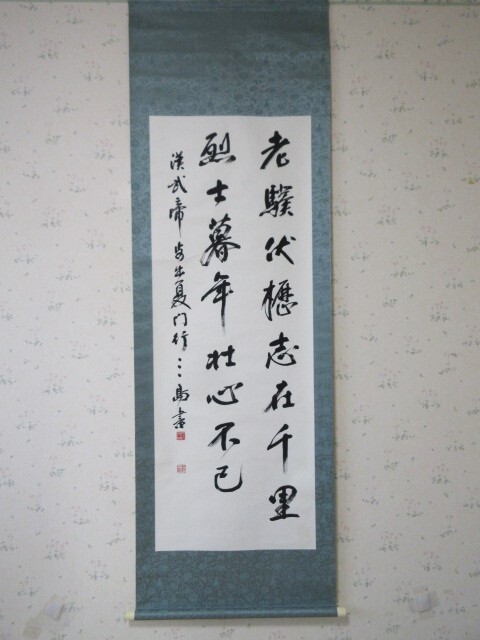 老驥伏櫪志在千里
烈士暮年壮心不已
漢武帝 步出夏門行
書